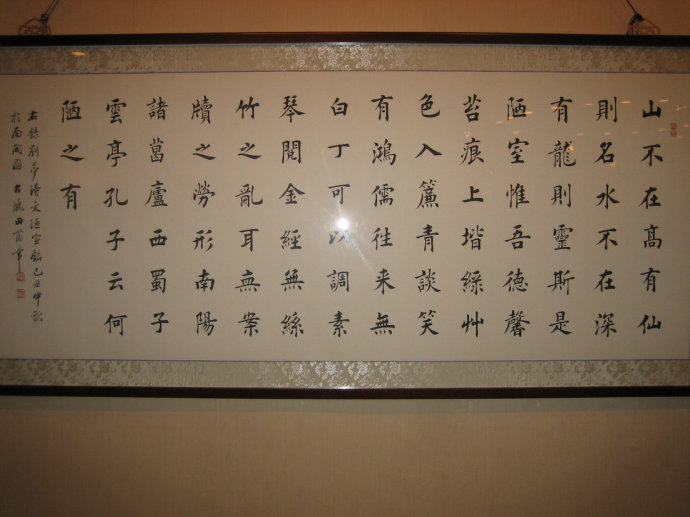 山不在髙有仙
則名水不在深
有龍則靈斯是
陋室惟吾德馨
苔痕上堦綠艸
色入簾青談笑
有鴻儒徃来無
白丁可以調素
琴閱金經無絲
竹之亂耳無案
牘之勞形南陽
諸葛廬西蜀子
雲亭孔子云何
陋之有
右錄劉夢得文陋室銘己丑中秋
於南開園 古瀛田蘊章